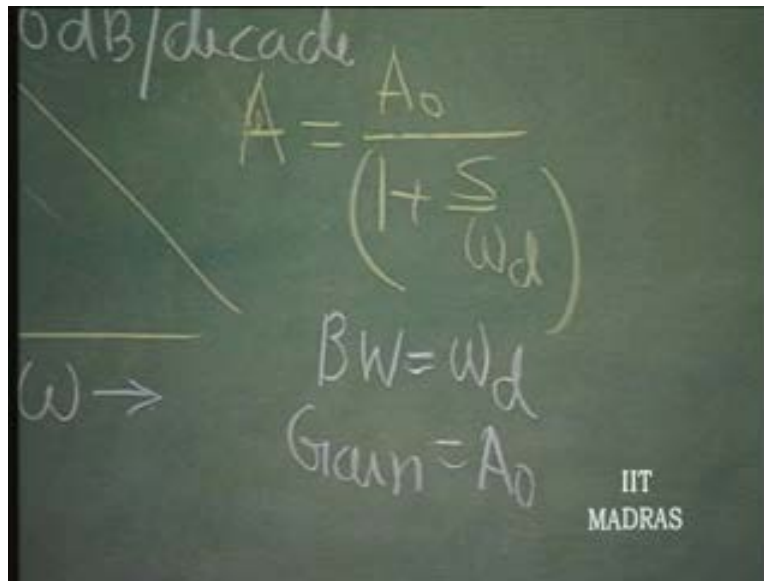 0dB/decade
A = A₀ / (1 + S/ωd)
ω →
BW = ωd
Gain = A₀
IIT
MADRAS